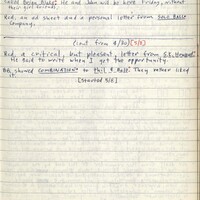 called Brian Blake. He and John will be here Friday, without
their girl friends.
Rcd. an ad sheet and a personal letter from
Company.
(cont from 4/30) [5/6]
Rcd, a critical, but pleasant, letter from S.E.
He said to write when I get the opportunity.
showed COMBINATIONS to Phil & Ralf. They rather liked
it.
[Started 5/6]